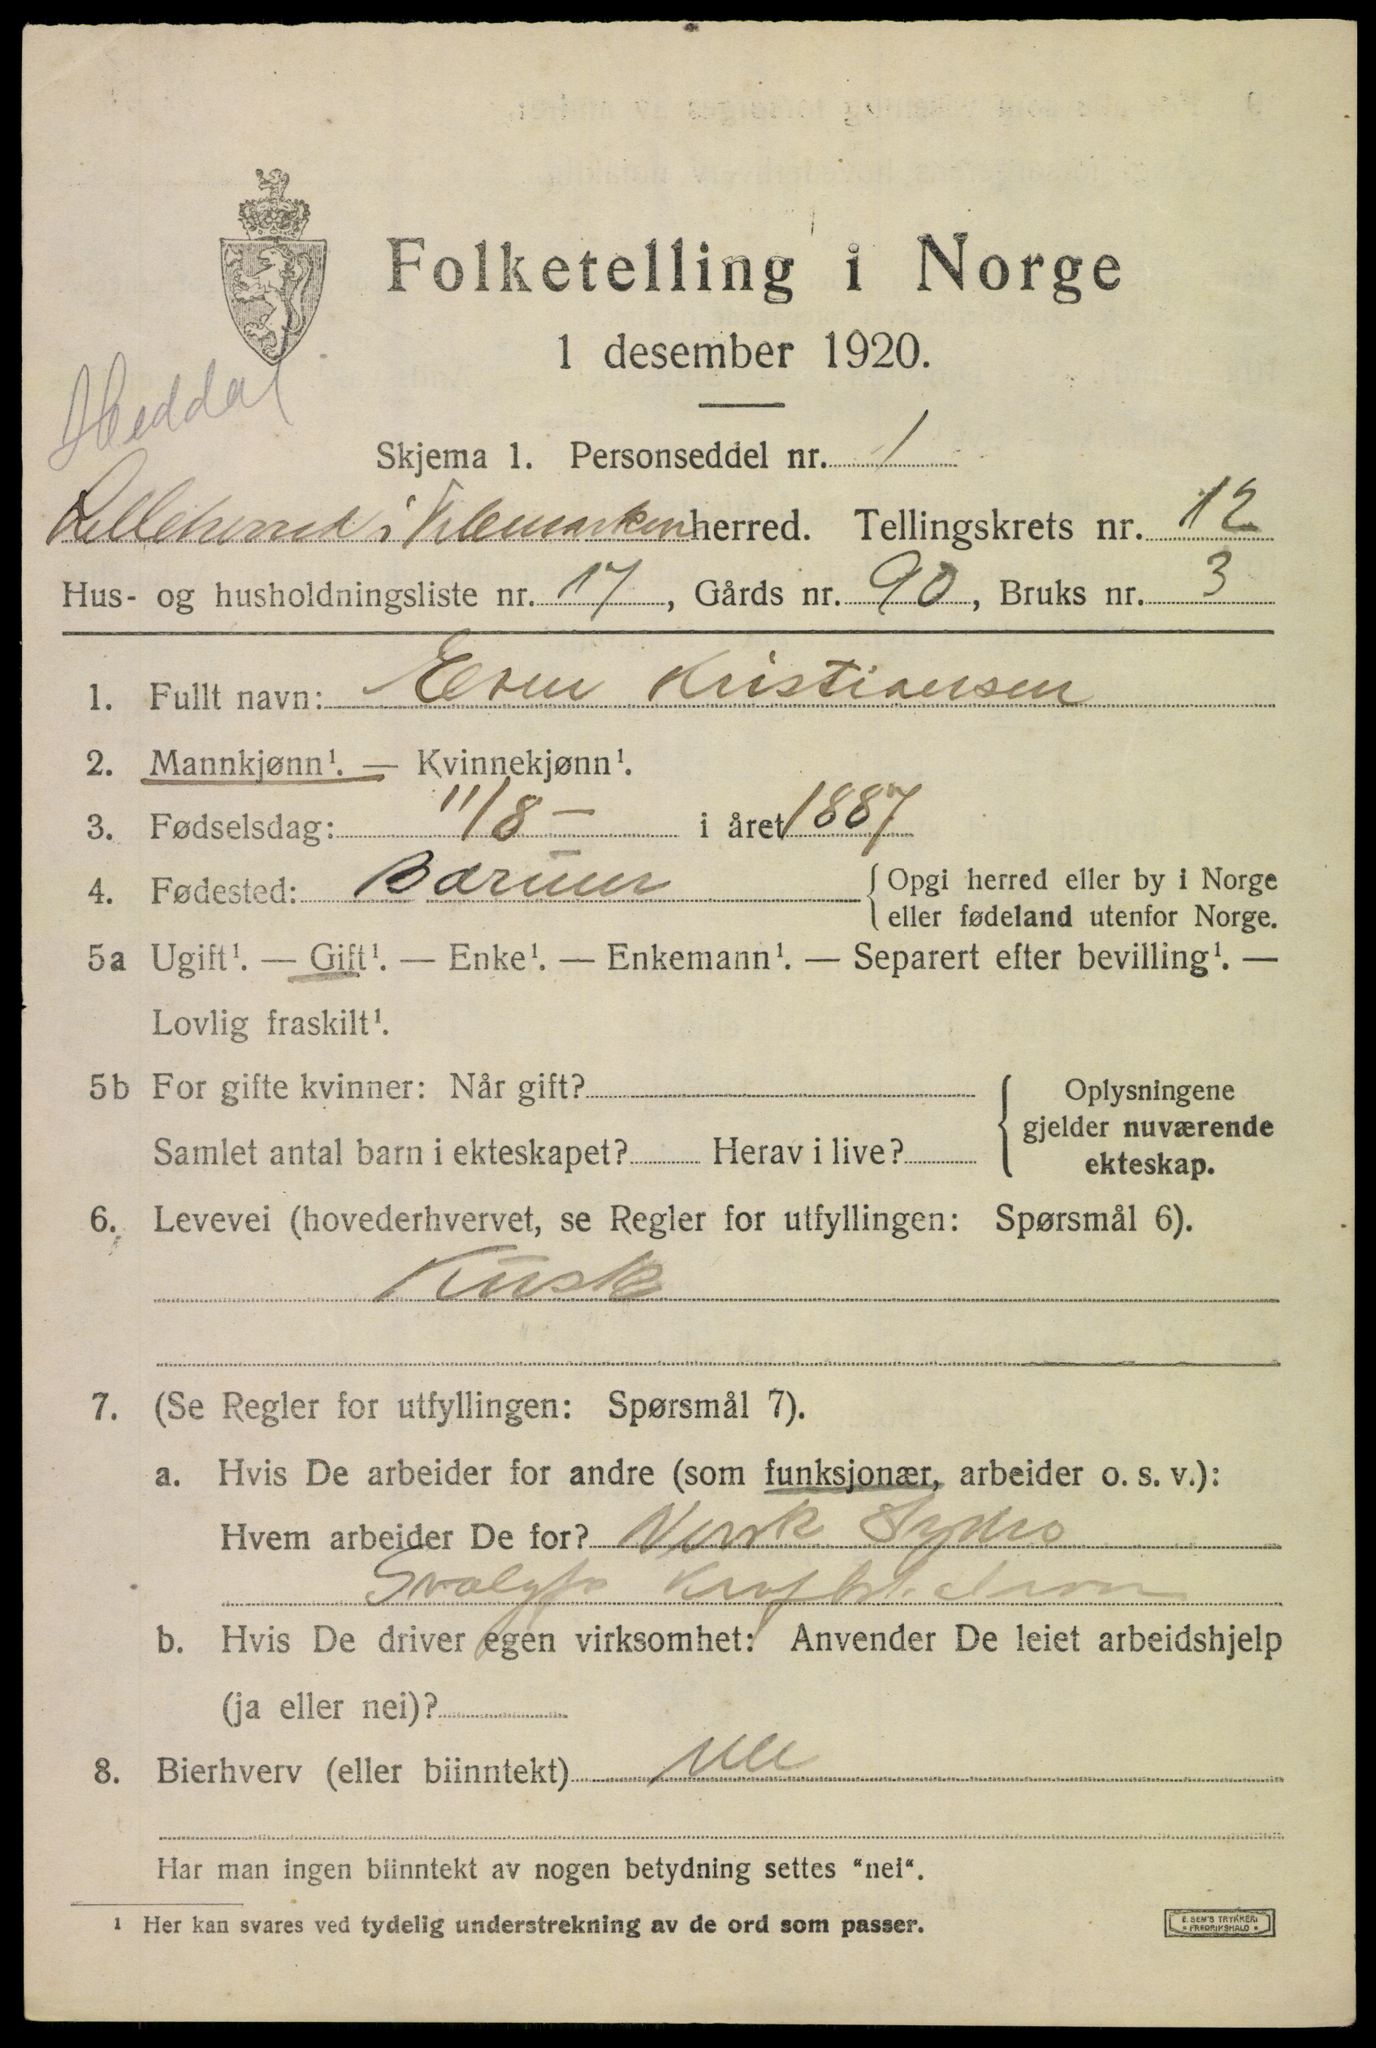 Folketelling i Norge
1 desember 1920.
Heddal
Skjema 1. Personseddel nr. 1
Lilleherred i Telemarken herred. Tellingskrets nr. 12
Hus- og husholdningsliste nr. 17, Gårds nr. 90, Bruks nr. 3
1. Fullt navn: Even Kristiansen
2. Mannkjønn¹. — Kvinnekjønn¹.
3. Fødselsdag: 11/8 — i året 1887
4. Fødested: Bærum {Opgi herred eller by i Norge
eller fødeland utenfor Norge.
5a Ugift¹. — Gift¹. — Enke¹. — Enkemann¹. — Separert efter bevilling¹. —
Lovlig fraskilt¹.
5b For gifte kvinner: Når gift? {Oplysningene
gjelder nuværende
Samlet antal barn i ekteskapet? Herav i live? ekteskap.
6. Levevei (hovederhvervet, se Regler for utfyllingen: Spørsmål 6).
Kusk
7. (Se Regler for utfyllingen: Spørsmål 7).
a. Hvis De arbeider for andre (som funksjonær, arbeider o. s. v.):
Hvem arbeider De for? Norsk Hydro
Svælgfos
b. Hvis De driver egen virksomhet: Anvender De leiet arbeidshjelp
(ja eller nei)?
8. Bierhverv (eller biinntekt) nei
Har man ingen biinntekt av nogen betydning settes "nei".
¹ Her kan svares ved tydelig understrekning av de ord som passer.
E. SEM'S TRYKKERI
* FREDRIKSHALD *